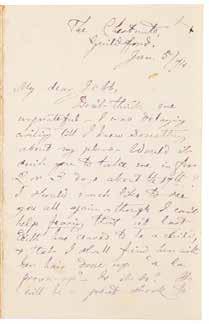 The Chestnuts,
Guildford.
Jan. 5/74
My dear Jebb,
Don't think me
ungrateful. I was delaying
writing till I knew something
about my plans. Would it
suit you to take me in for
2 or 3 days about
I should much like to see
you all again, though I can't
help fearing that
has ceased to be a child,
& that I shall find her with
her hair done up "a la
grown-up". Is it so? It
will be a great shock to